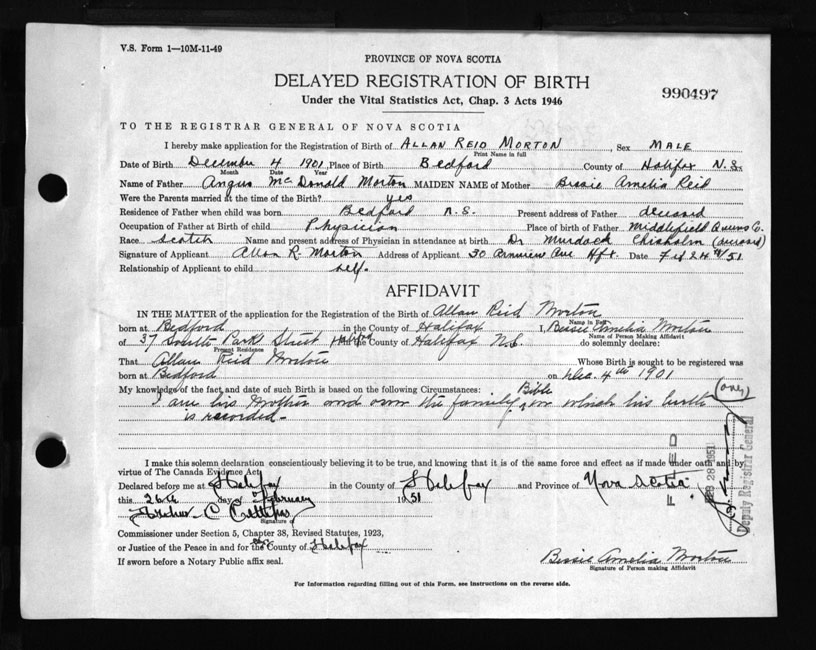 V.S. Form 1—10M-11-49
PROVINCE OF NOVA SCOTIA
DELAYED REGISTRATION OF BIRTH
990497
Under the Vital Statistics Act, Chap. 3 Acts 1946
TO THE REGISTRAR GENERAL OF NOVA SCOTIA
I hereby make application for the Registration of Birth of ALLAN REID MORTON, Sex MALE
Print Name in full
Date of Birth December 4 1901, Place of Birth Bedford County of Halifax N.S.
Month Date Year
Name of Father Angus McDonald Morton MAIDEN NAME of Mother Bessie Amelia Reid
Were the Parents married at the time of the Birth? yes
Residence of Father when child was born Bedford N.S. Present address of Father deceased
Occupation of Father at Birth of child Physician Place of birth of Father Middlefield Queens Co.
Race Scotch Name and present address of Physician in attendance at birth Dr Murdock Chisholm (deceased)
Signature of Applicant Allan R. Morton Address of Applicant 30 Ave Hfx. Date Feb 24/51
Relationship of Applicant to child self.
AFFIDAVIT
IN THE MATTER of the application for the Registration of Birth of Allan Reid Morton
Name in Full
born at Bedford in the County of Halifax I, Bessie Amelia Morton
Name of Person Making Affidavit
of 37 South Park Street Halifax County of Halifax N.S. do solemnly declare:
Present Residence
That Allan Reid Morton Whose Birth is sought to be registered was
born at Bedford on Dec. 4th 1901
My knowledge of the fact and date of such Birth is based on the following Circumstances: Bible
I am his Mother and own the family in which his birth
is recorded.
I make this solemn declaration conscientiously believing it to be true, and knowing that it is of the same force and effect as if made under oath and by
virtue of The Canada Evidence Act.
Declared before me at Halifax in the County of Halifax and Province of Nova Scotia
this 26th day of February 1951
Signature of
Commissioner under Section 5, Chapter 38, Revised Statutes, 1923,
or Justice of the Peace in and for the County of Halifax
If sworn before a Notary Public affix seal.
Bessie Amelia Morton
Signature of Person making Affidavit
For Information regarding filling out of this Form, see instructions on the reverse side.
FEB 28 1951
Deputy Registrar General